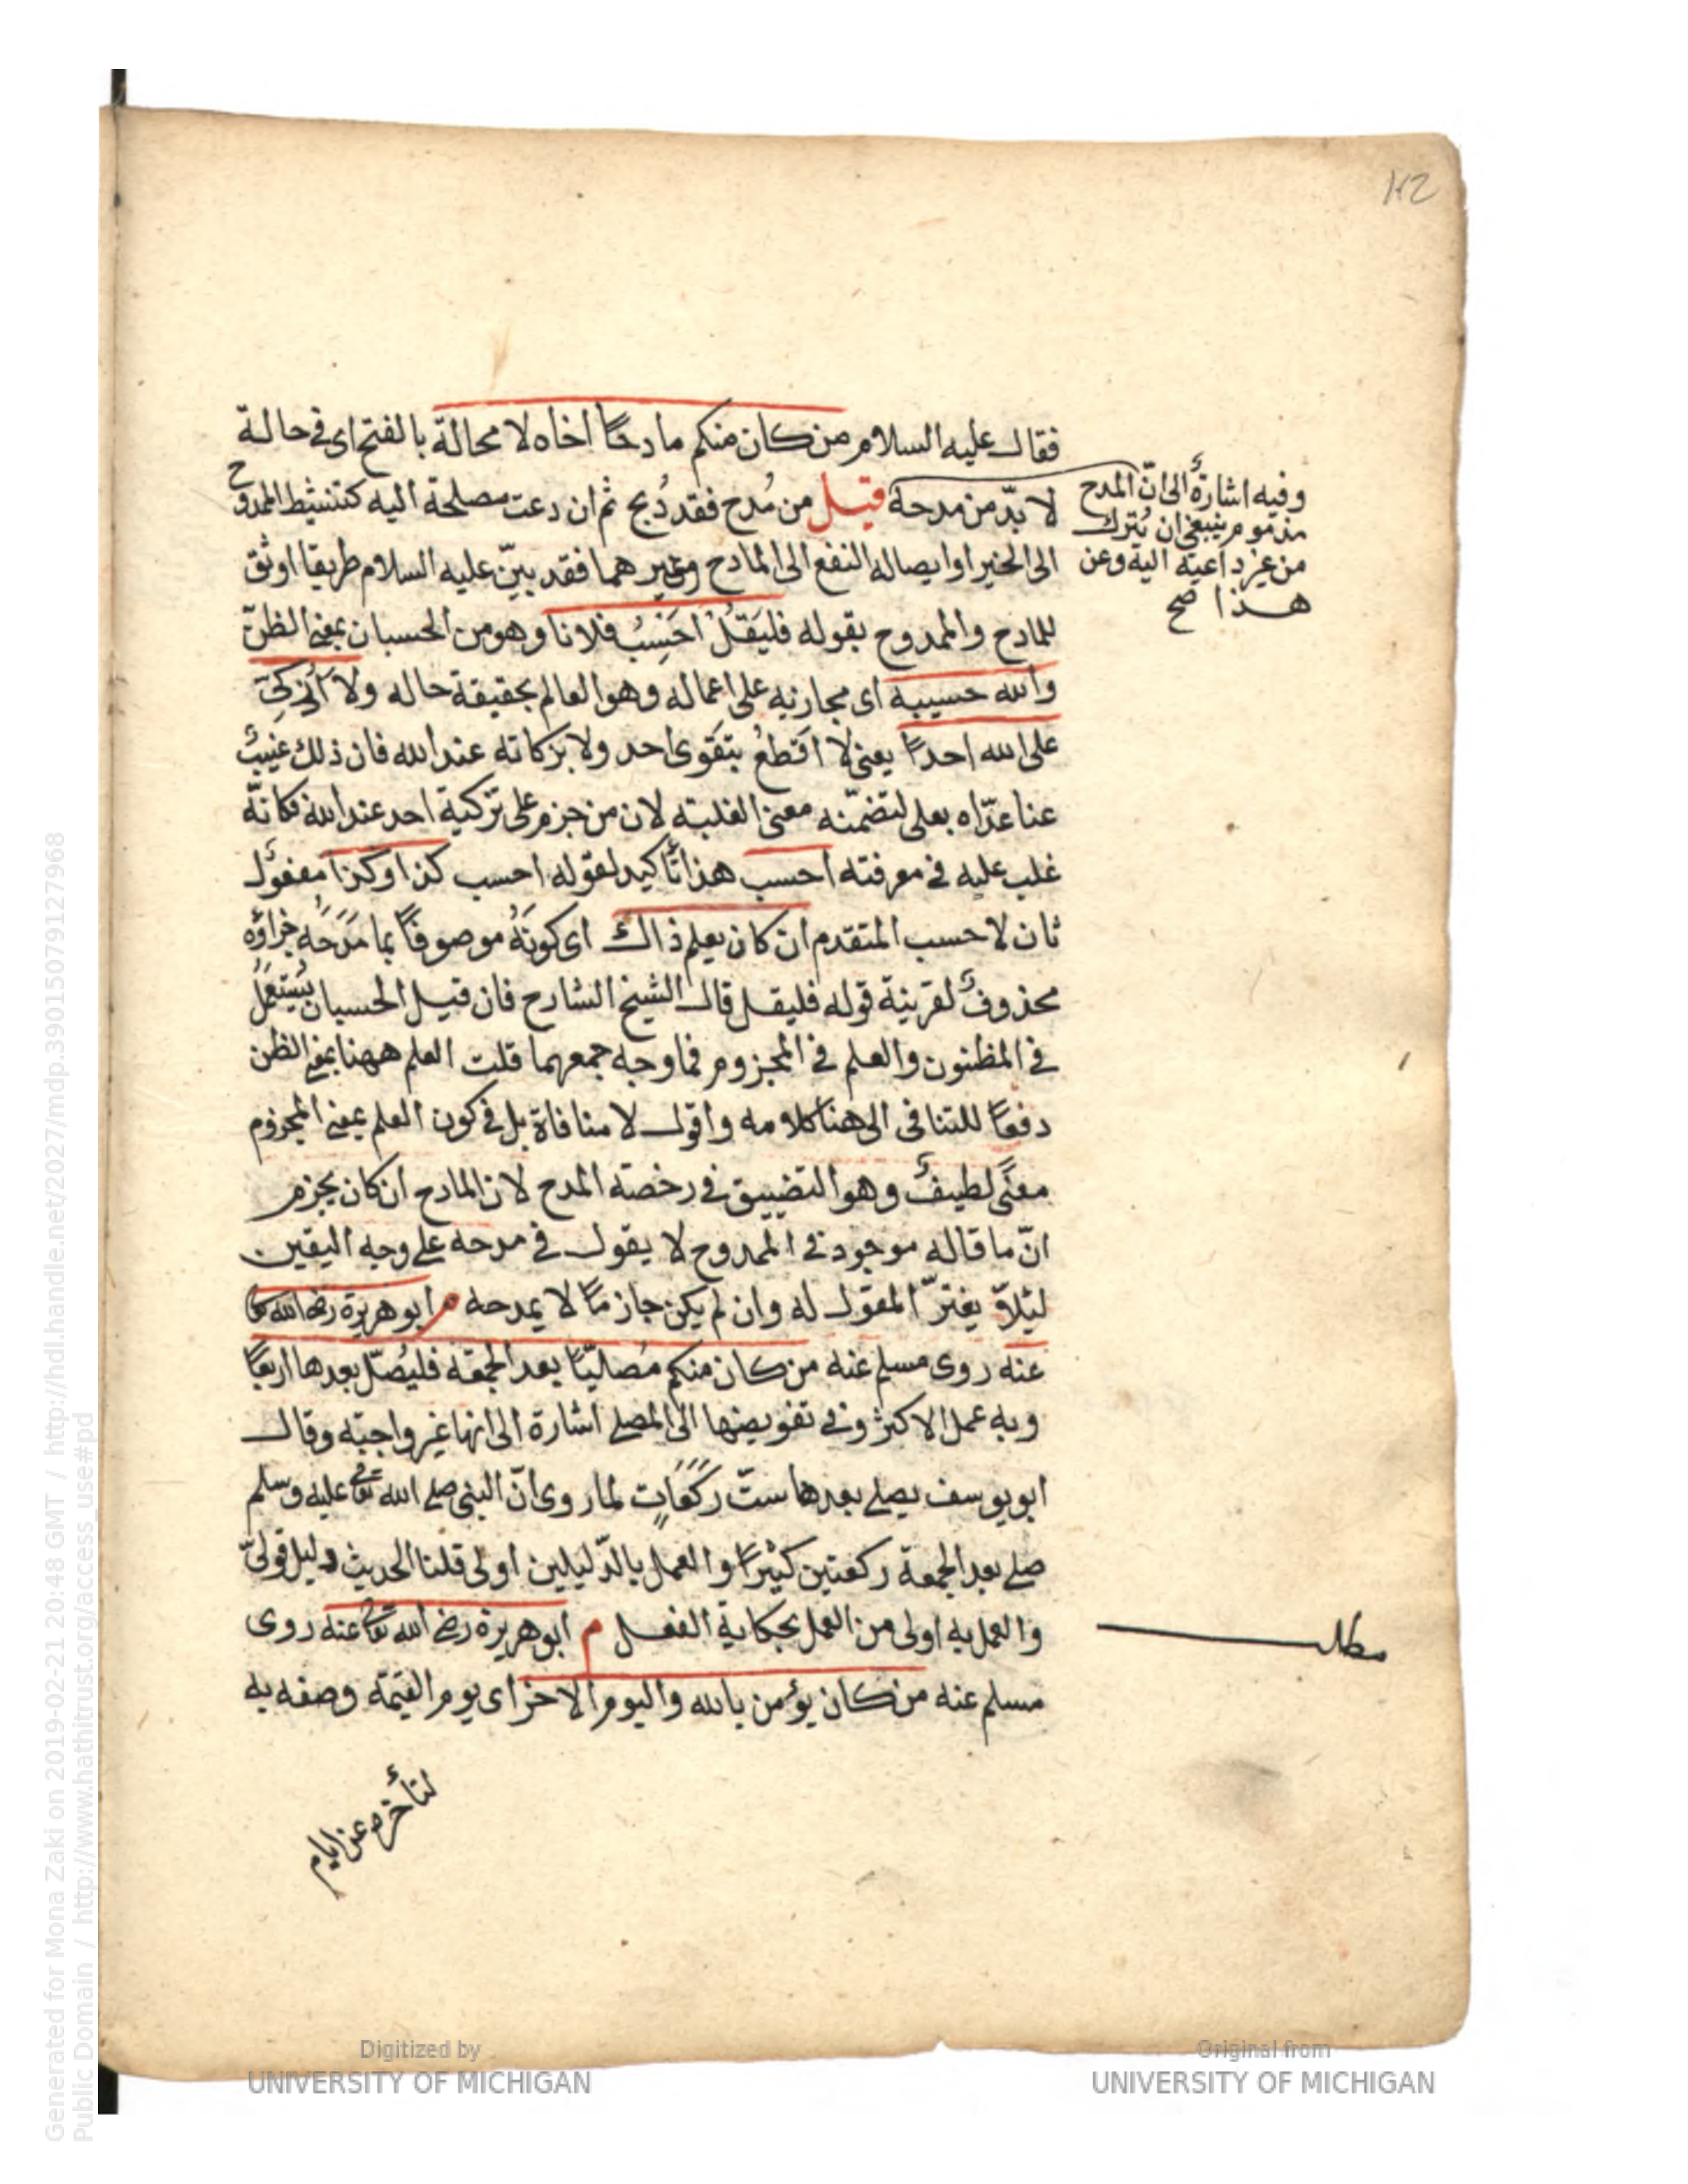 فقال عليه السلام من كان منكم مادحًا اخاه لا محالة بالفتح اى فى حالة
لا بدّ من مدحه قيل من مُدح فقد ذُبح ثم ان دعت مصلحة اليه كتنشيط الممدوح
الى الخير او ايصاله النفع الى المادح وغيرهما فقد بيّن عليه السلام طريقا اوثق
للمادح والممدوح بقوله فليَقُلْ احَسِبُ فلانا وهو من الحسبان بمعنى الظنّ
والله حسيبه اى مجازيه على اعماله وهو العالم بحقيقة حاله ولا اُزكىّ
على الله احدًا يعنى لا اَقطعُ بتقوى احد ولا بزكاته عند الله فان ذلك غيبٌ
عنا عدّاه بعلى لتضمّنه معنى الغلبته لان من جزم على تزكية احد عند الله فكانّه
غلب عليه فى معرفته احسب هذا تاكيد لقوله احسب كذا وكذا مفعول
ثان لاحسب المتقدم ان كان يعلم ذاك اى كونَهُ موصوفًا بما مَدَحَهُ جزاؤه
محذوفٌ لقرينة قوله فليقل قال الشيخ الشارح فان قيل الحسبان يُستعمَلُ
فى المظنون والعلم فى المجزوم فما وجه جمعهما قلت العلم ههنا بمعنى الظن
دفعًا للتنافى الى هنا كلامه واقول لا منافاة بل فى كون العلم بمعنى المجزوم
معنًى لطيفٌ وهو التضييق فى رخصة المدح لان المادح ان كان يجزم
انّ ما قاله موجود فى الممدوح لا يقول فى مدحه على وجه اليقين
ليئلاّ يغترّ المقول له وان لم يكن جازمًا لا يمدحه م ابو هريرة رضى الله تعا
عنه روى مسلم عنه من كان منكم مُصاليًّا بعد الجمعة فليُصلّ بعدها اربعًا
وبه عمل الاكثر وفى تفويضها الى المصلى اشارة الى انها غير واجبته وقال
ابو يوسف يصلى بعدها ستّ ركعاتٍ لما روى انّ النبى صلى الله تعا عليه وسلم
صلى بعد الجمعة ركعتين كثيرًا والعمل بالدّليلين اولى قلنا الحديث دليل قولىّ
والعمل به اولى من العمل بحكاية الفعل م ابو هريرة رضى الله تعا عنه روى
مسلم عنه من كان يؤمن بالله واليوم الاخر اى يوم القيمة وصفه به
لتأخره عن ايام
وفيه اشارةٌ الى انّ المدح
مذموم ينبغى ان يُترك
من غير داعية اليه وعن
هذا صح
مطلب
Digitized by
UNIVERSITY OF MICHIGAN
Original from
UNIVERSITY OF MICHIGAN
Generated for Mona Zaki on 2019-02-21 20:48 GMT / http://hdl.handle.net/2027/mdp.39015079127968
Public Domain / http://www.hathitrust.org/access_use#pd